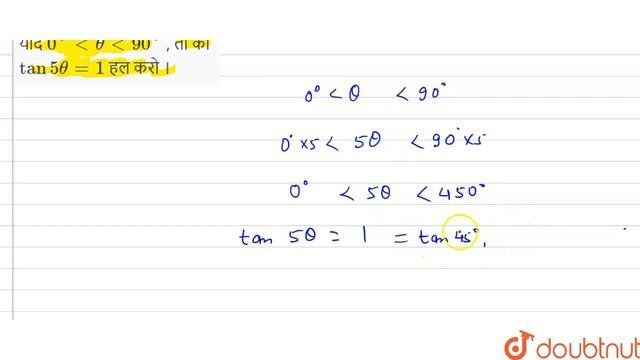 यदि 0° < θ < 90°, तो को
tan 5θ = 1 हल करो ।
0° < θ < 90°
0° × 5 < 5θ < 90° × 5
0° < 5θ < 450°
tan 5θ = 1 = tan 45°,
doubtnut